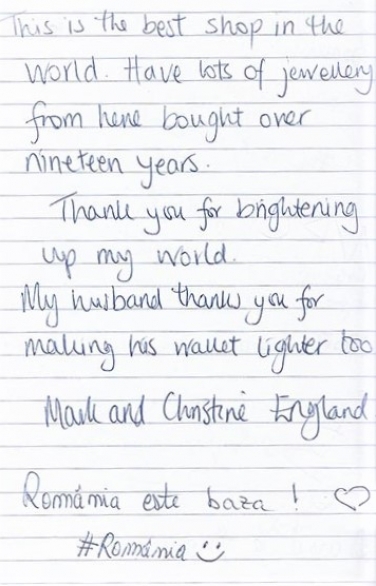 This is the best shop in the
world. Have lots of jewellery
from here bought over
nineteen years.
Thank you for brightening
up my world.
My husband thanks you for
making his wallet lighter too
Mark and Christine England
Românnia este baza ! ♡
#România :)